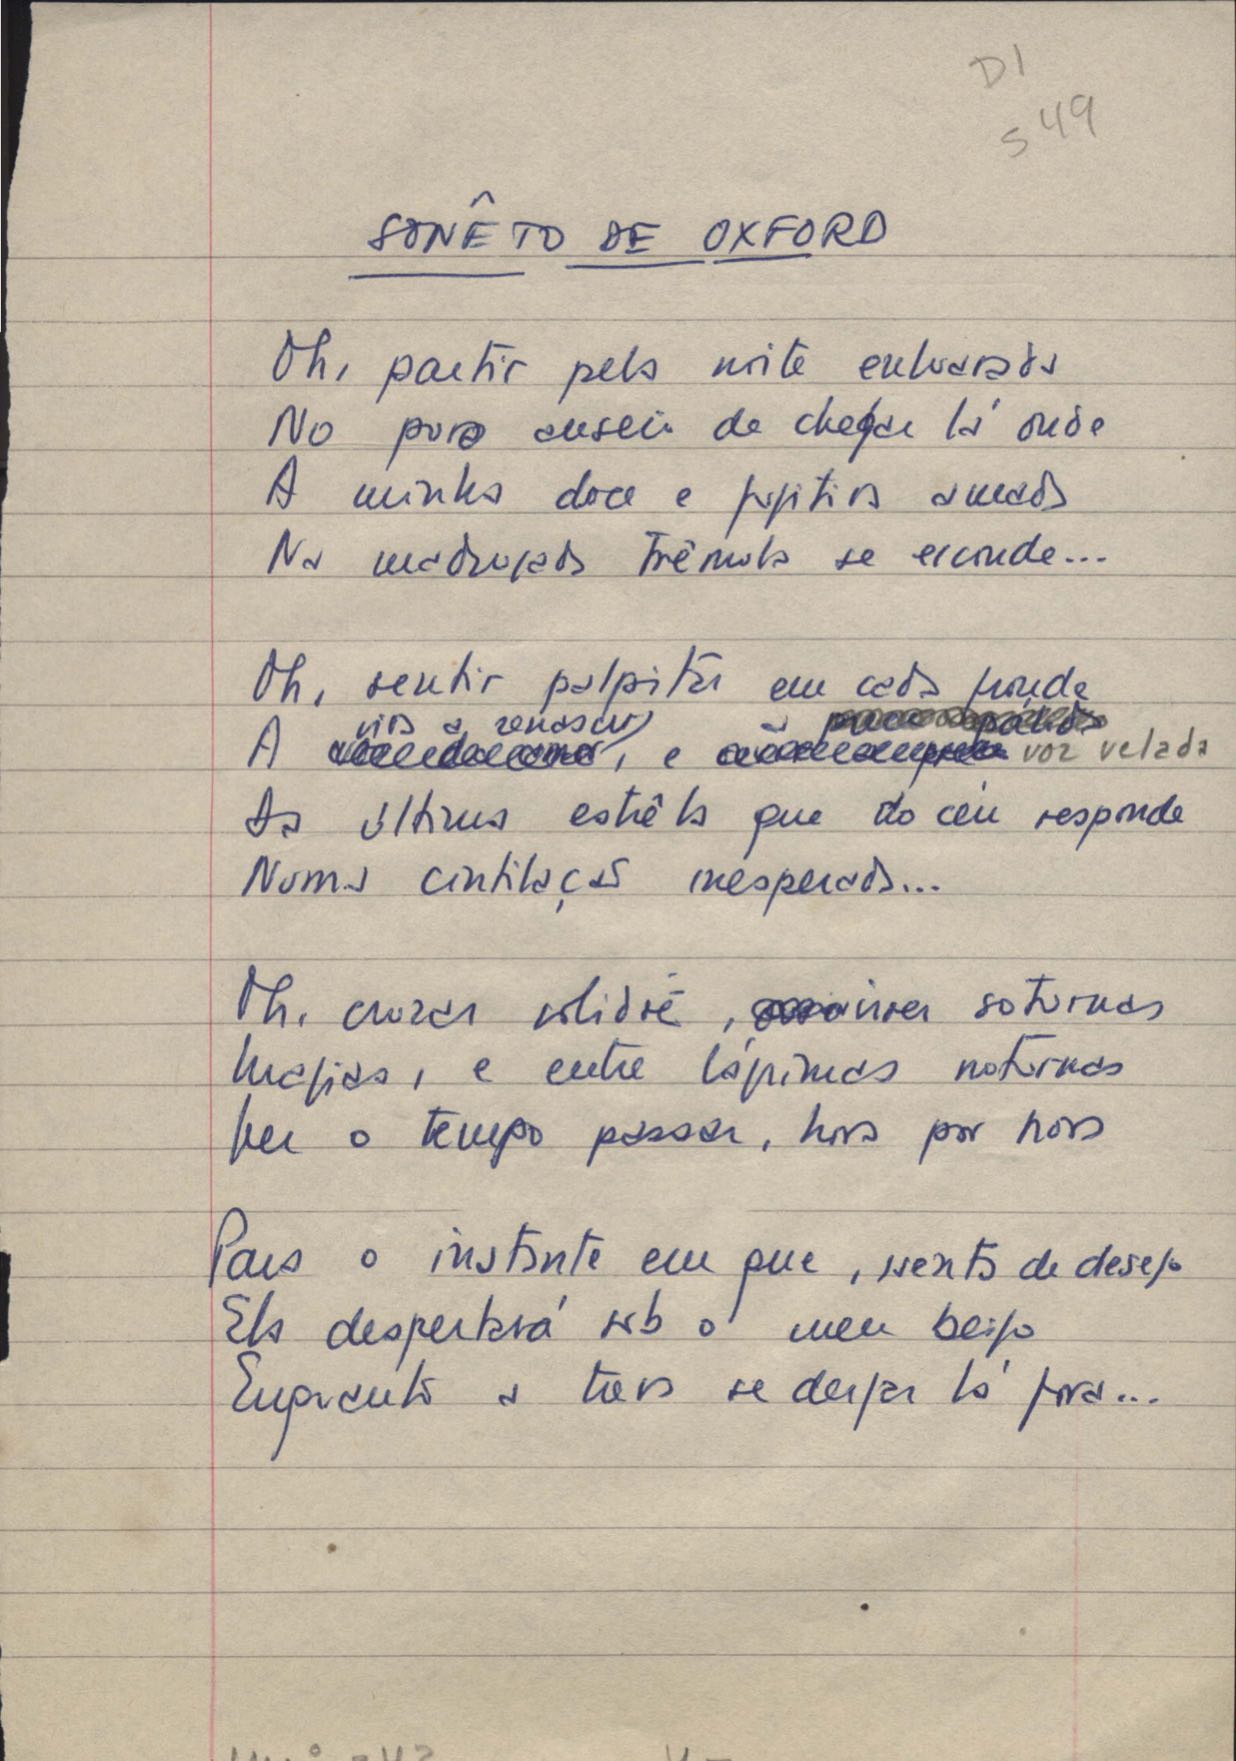 D1
S 49
SONÊTO DE OXFORD
Oh, partir pela noite enluarada
No puro anseio de chegar lá onde
A minha doce e fugitiva amada
Na madrugada trêmula se esconde...
Oh, sentir palpitar em cada fronde
vida a renascer, à
A , e voz velada
Da última estrêla que do céu responde
Numa cintilação inesperada...
Oh, cruzar solidões, viver soturnas
Magias, e entre lágrimas noturnas
Ver o tempo passar, hora por hora
Para o instante em que, isenta de desejo
Ela despertará sob o meu beijo
Enquanto a treva se desfaz lá fora...